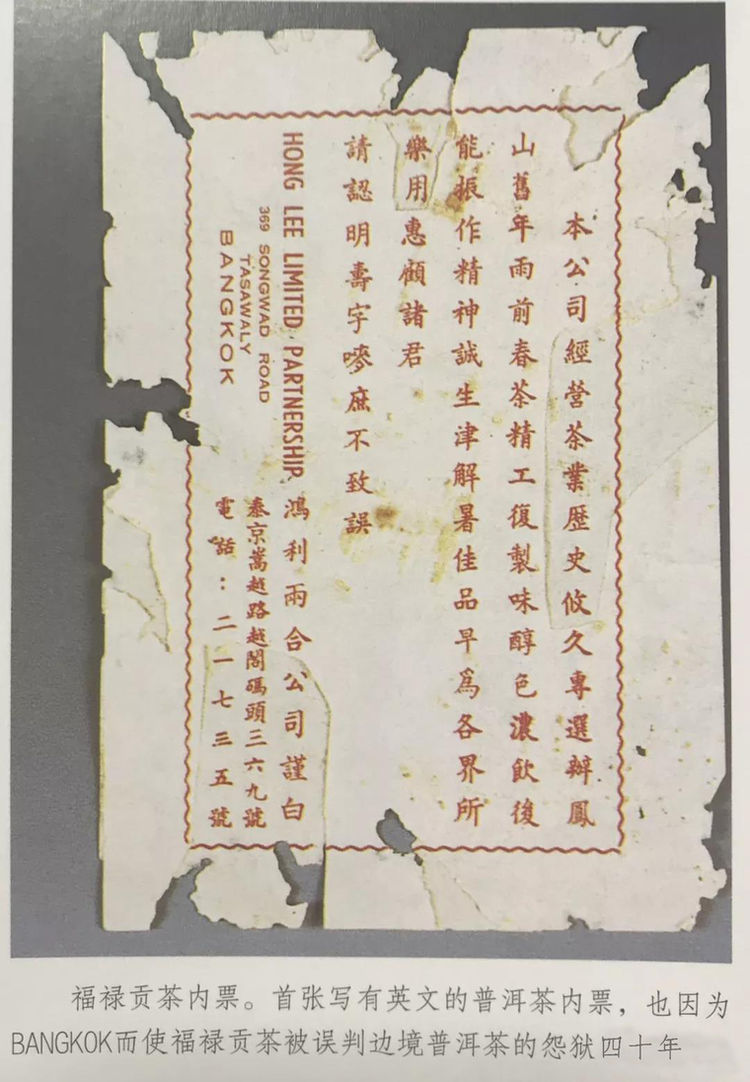 本公司經營茶業歷史攸久專選辦鳳
山舊年雨前春茶精工復製味醇色濃飲後
能振作精神誠生津解暑佳品早為各界所
樂用惠顧諸君
請認明壽字嘜庶不致誤
HONG LEE LIMITED PARTNERSHIP
369 SONGWAD ROAD
TASAWALY
BANGKOK
鴻利兩合公司謹白
泰京嵩越路越閣碼頭三六九號
電話：二一七三五號
福禄贡茶内票。首张写有英文的普洱茶内票，也因为
BANGKOK而使福禄贡茶被误判边境普洱茶的怨狱四十年